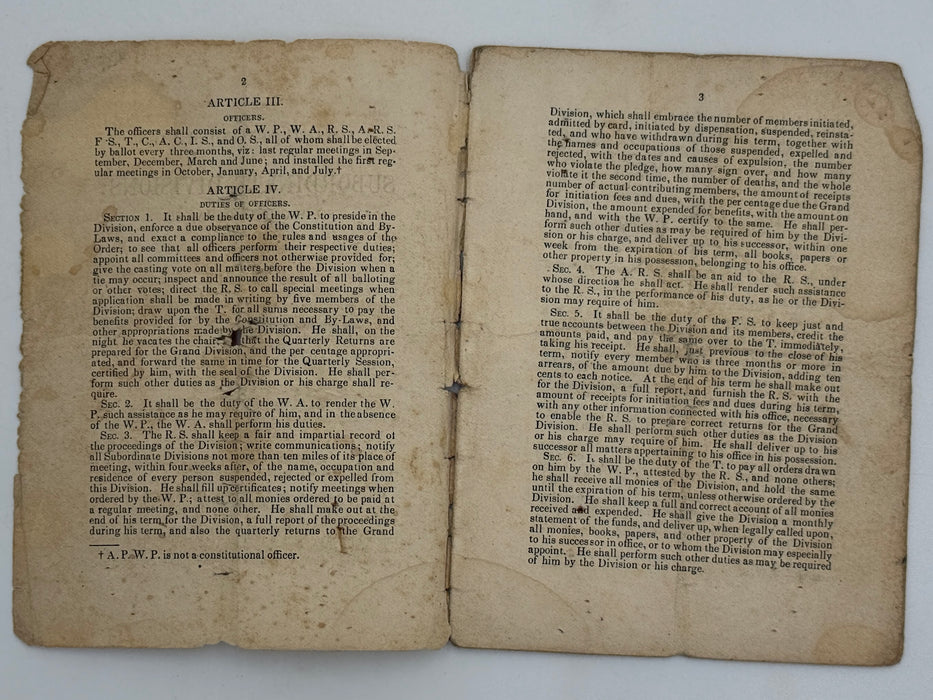 2
ARTICLE III.
OFFICERS.
The officers shall consist of a W. P., W. A., R. S., A. R. S.
F. S., T., C., A. C., I. S., and O. S., all of whom shall be elected
by ballot every three months, viz: last regular meetings in Sep-
tember, December, March and June; and installed the first reg-
ular meetings in October, January, April, and July.†
ARTICLE IV.
DUTIES OF OFFICERS.
SECTION 1. It shall be the duty of the W. P. to preside in the
Division, enforce a due observance of the Constitution and By-
Laws, and exact a compliance to the rules and usages of the
Order; to see that all officers perform their respective duties;
appoint all committees and officers not otherwise provided for;
give the casting vote on all matters before the Division when a
tie may occur; inspect and announce the result of all balloting
or other votes; direct the R. S. to call special meetings when
application shall be made in writing by five members of the
Division; draw upon the T. for all sums necessary to pay the
benefits provided for by the Constitution and By-Laws, and
other appropriations made by the Division. He shall, on the
night he vacates the chair, that the Quarterly Returns are
prepared for the Grand Division, and the per centage appropri-
ated, and forward the same in time for the Quarterly Session,
certified by him, with the seal of the Division. He shall per-
form such other duties as the Division or his charge shall re-
quire.
SEC. 2. It shall be the duty of the W. A. to render the W.
P. such assistance as he may require of him, and in the absence
of the W. P., the W. A. shall perform his duties.
SEC. 3. The R. S. shall keep a fair and impartial record of
the proceedings of the Division; write communications; notify
all Subordinate Divisions not more than ten miles of its place of
meeting, within four weeks after, of the name, occupation and
residence of every person suspended, rejected or expelled from
this Division. He shall fill up certificates; notify meetings when
ordered by the W. P.; attest to all monies ordered to be paid at
a regular meeting, and none other. He shall make out at the
end of his term for the Division, a full report of the proceedings
during his term, and also the quarterly returns to the Grand
† A. P. W. P. is not a constitutional officer.
3
Division, which shall embrace the number of members initiated,
admitted by card, initiated by dispensation, suspended, reinsta-
ted, and who have withdrawn during his term, together with
the names and occupations of those suspended, expelled and
rejected, with the dates and causes of expulsion, the number
who violate the pledge, how many sign over, and how many
violate it the second time, the number of deaths, and the whole
number of actual contributing members, the amount of receipts
for initiation fees and dues, with the per centage due the Grand
Division, the amount expended for benefits, with the amount on
hand, and with the W. P. certify to the same. He shall per-
form such other duties as may be required of him by the Divi-
sion or his charge, and deliver up to his successor, within one
week from the expiration of his term, all books, papers or
other property in his possession, belonging to his office.
SEC. 4. The A. R. S. shall be an aid to the R. S., under
whose direction he shall act. He shall render such assistance
to the R. S., in the performance of his duty, as he or the Divi-
sion may require of him.
SEC. 5. It shall be the duty of the F. S. to keep just and
true accounts between the Division and its members, credit the
amounts paid, and pay the same over to the T. immediately,
taking his receipt. He shall, just previous to the close of his
term, notify every member who is three months or more in
arrears, of the amount due by him to the Division, adding ten
cents to each notice. At the end of his term he shall make out
for the Division, a full report, and furnish the R. S. with the
amount of receipts for initiation fees and dues during his term,
with any other information connected with his office, necessary
to enable the R. S. to prepare correct returns for the Grand
Division. He shall perform such other duties as the Division
or his charge may require of him. He shall deliver up to his
successor all matters appertaining to his office in his possession.
SEC. 6. It shall be the duty of the T. to pay all orders drawn
on him by the W. P., attested by the R. S., and none others;
he shall receive all monies of the Division, and hold the same
until the expiration of his term, unless otherwise ordered by the
Division. He shall keep a full and correct account of all monies
received and expended. He shall give the Division a monthly
statement of the funds, and deliver up, when legally called upon,
all monies, books, papers, and other property of the Division
to his successor in office, or to whom the Division may especially
appoint. He shall perform such other duties as may be required
of him by the Division or his charge.